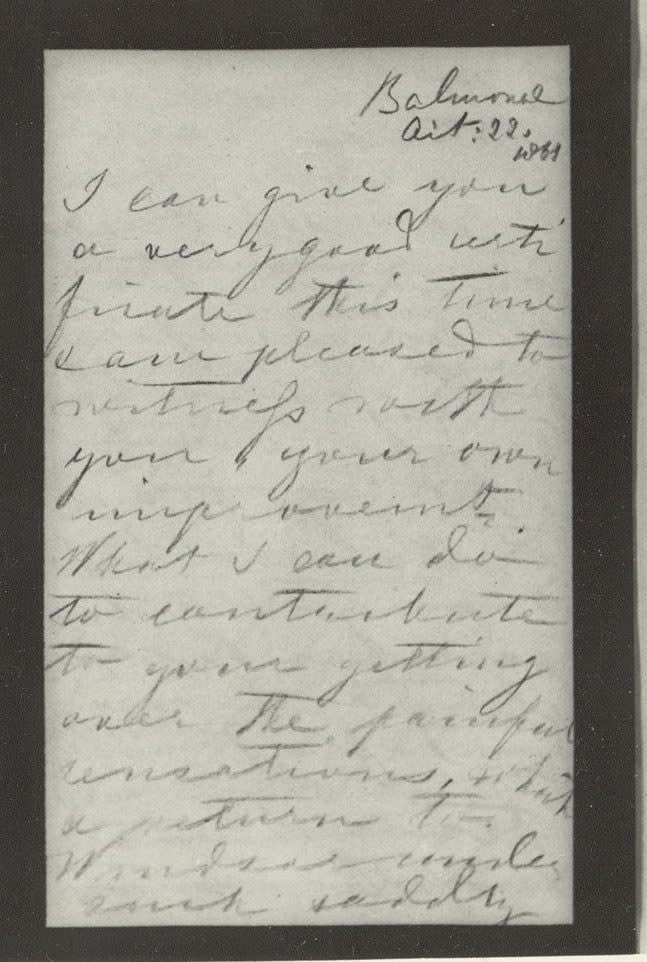 Balmoral
Oct: 22.
1861
I can give you
a very good certi
ficate this time
& am pleased to
witness with
you, your own
improvemt.
What I can do
to contribute
to your getting
over the painful
sensations, which
a return to
Windsor under
such sadly